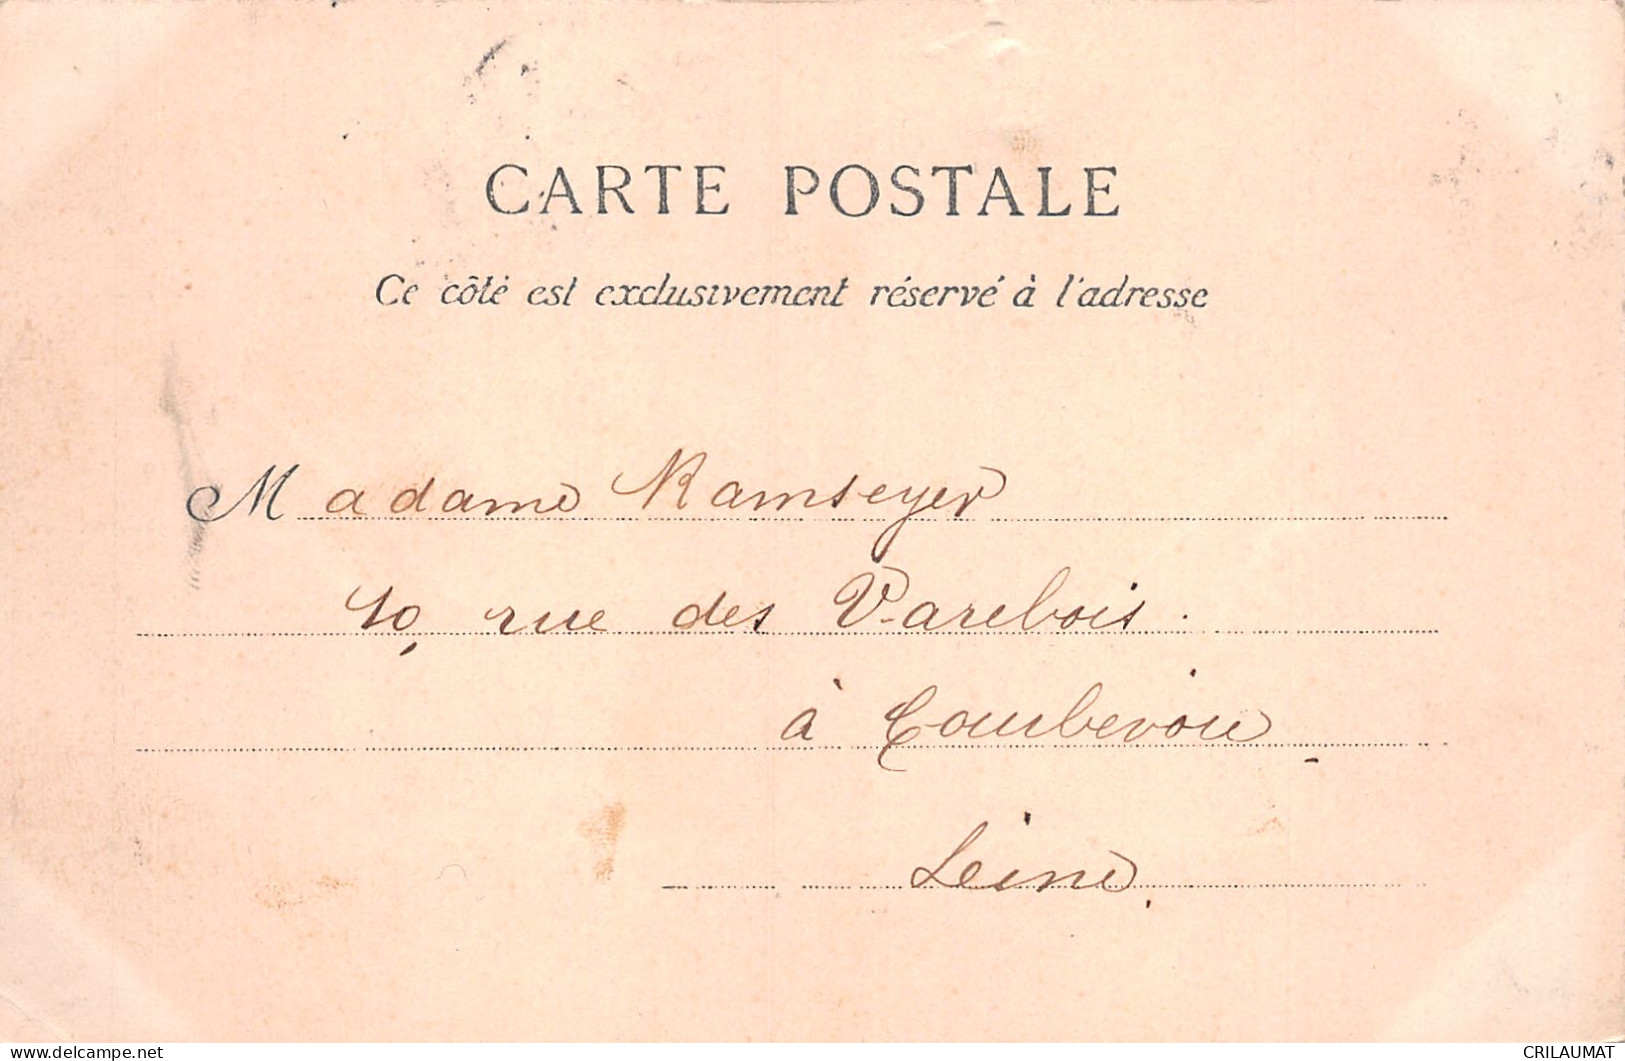 CARTE POSTALE
Ce côté est exclusivement réservé à l'adresse
Madame Ramseyer
10, rue des Varebois.
à Courbevoie
Seine.
www.delcampe.net
CRILAUMAT